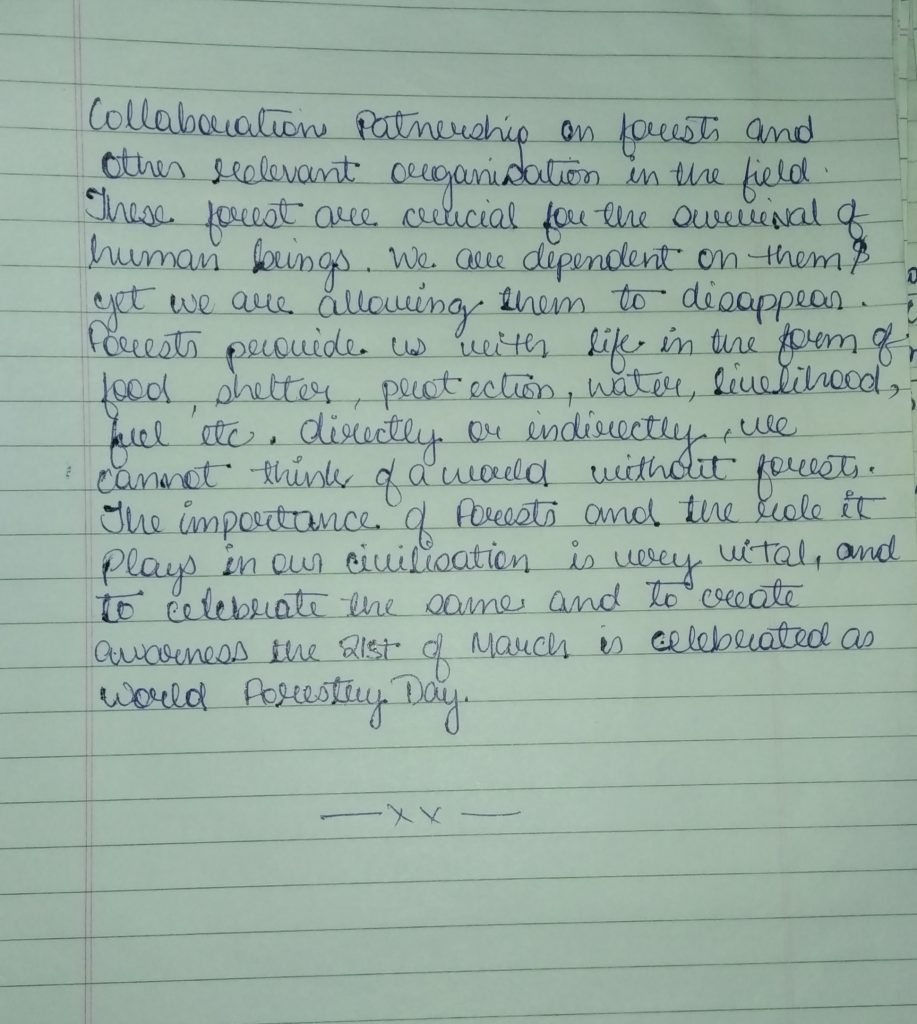 Collaboration Patnership on forests and
other relevant organisation in the field.
These forest are crucial for the survival of
human beings. We are dependent on them &
yet we are allowing them to disappear.
Forests provide us with life in the form of
food, shelter, protection, water, livelihood,
fuel etc. directly or indirectly, we
cannot think of a world without forests.
The importance of Forests and the role it
Plays in our civilisation is very vital, and
to celebrate the same and to create
awarness the 21st of March is celebrated as
World Forestry Day.
— x x —